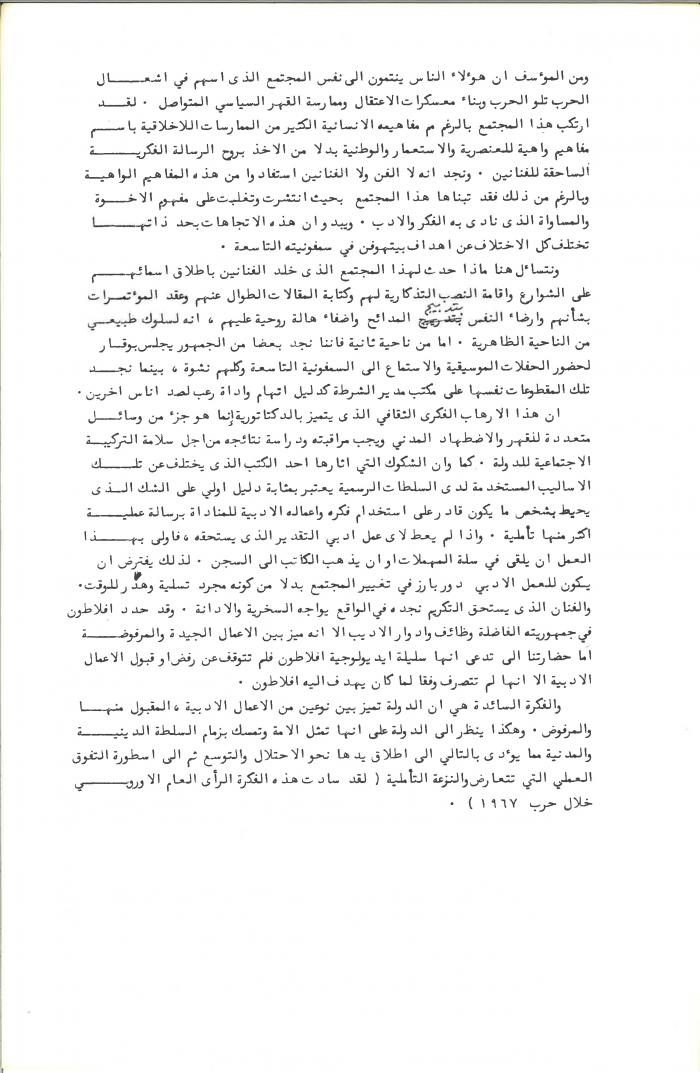 ومن المؤسف ان هؤلاء الناس ينتمون الى نفس المجتمع الذى اسهم في اشعـــــال
الحرب تلو الحرب وبناء معسكرات الاعتقال وممارسة القهر السياسي المتواصل . لقـــد
ارتكب هذا المجتمع بالرغم م مفاهيمه الانسانية الكثير من الممارسات اللاخلاقية باســـم
مفاهيم واهية للعنصرية والاستعمار والوطنية بدلا من الاخذ بروح الرسالة الفكريـــــة
الساحقة للفنانين . ونجد انه لا الفن ولا الفنانين استفادوا من هذه المفاهيم الواهية
وبالرغم من ذلك فقد تبناها هذا المجتمع بحيث انتشرت وتغلبت على مفهوم الاخـــوة
والمساواة الذى نادى به الفكر والادب . ويبدو ان هذه الاتجاهات بحد ذاتهـــــا
تختلف كل الاختلاف عن اهداف بيتهوفن في سمفونيته التاسعة .
ونتسائل هنا ماذا حدث لهذا المجتمع الذى خلد الفنانين باطلاق اسمائهـــم
على الشوارع واقامة النصب التذكارية لهم وكتابة المقالات الطوال عنهم وعقد المؤتمرات
بشأنهم وارضاء النفس بتدبيج المدائح واضفاء هالة روحية عليهم ، انه لسلوك طبيعـــي
من الناحية الظاهرية . اما من ناحية ثانية فاننا نجد بعضا من الجمهور يجلس بوقـــار
لحضور الحفلات الموسيقية والاستماع الى السمفونية التاسعة وكلهم نشوة ، بينما نجـــد
تلك المقطوعات نفسها على مكتب مدير الشرطة كدليل اتهام واداة رعب لصد اناس اخرين .
ان هذا الارهاب الفكرى الثقافي الذى يتميز بالدكتاتورية إنما هو جزء من وسائـــل
متعددة للقهر والاضطهاد المدني ويجب مراقبته ودراسة نتائجه من اجل سلامة التركيبة
الاجتماعية للدولة . كما وان الشكوك التي اثارها احد الكتب الذى يختلف عن تلـــــك
الاساليب المستخدمة لدى السلطات الرسمية يعتبر بمثابة دليل اولي على الشك الـــذى
يحيط بشخص ما يكون قادر على استخدام فكره واعماله الادبية للمناداة برسالة عمليـــة
اكثر منها تأملية . واذا لم يعط لاى عمل ادبي التقدير الذى يستحقه ، فاولى بهـــــذا
العمل ان يلقى في سلة المهملات او ان يذهب الكاتب الى السجن . لذلك يفترض ان
يكون للعمل الادبي دور بارز في تغيير المجتمع بدلا من كونه مجرد تسلية وهدر للوقت.
والفنان الذى يستحق التكريم نجده في الواقع يواجه السخرية والادانة . وقد حدد افلاطون
في جمهوريته الفاضلة وظائف وادوار الاديب الا انه ميز بين الاعمال الجيدة والمرفوضـــــة
اما حضارتنا التى تدعى انها سليلة ايديولوجية افلاطون فلم تتوقف عن رفض او قبول الاعمال
الادبية الا انها لم تتصرف وفقا لما كان يهدف اليه افلاطون .
والفكرة السائدة هي ان الدولة تميز بين نوعين من الاعمال الادبية ، المقبول منهـــا
والمرفوض . وهكذا ينظر الى الدولة على انها تمثل الامة وتمسك بزمام السلطة الدينيـــة
والمدنية مما يؤدى بالتالي الى اطلاق يدها نحو الاحتلال والتوسع ثم الى اسطورة التفوق
العملي التي تتعارض والنزعة التأملية ( لقد سادت هذه الفكرة الرأى العام الاوروبـــــي
خلال حرب ١٩٦٧ ) .